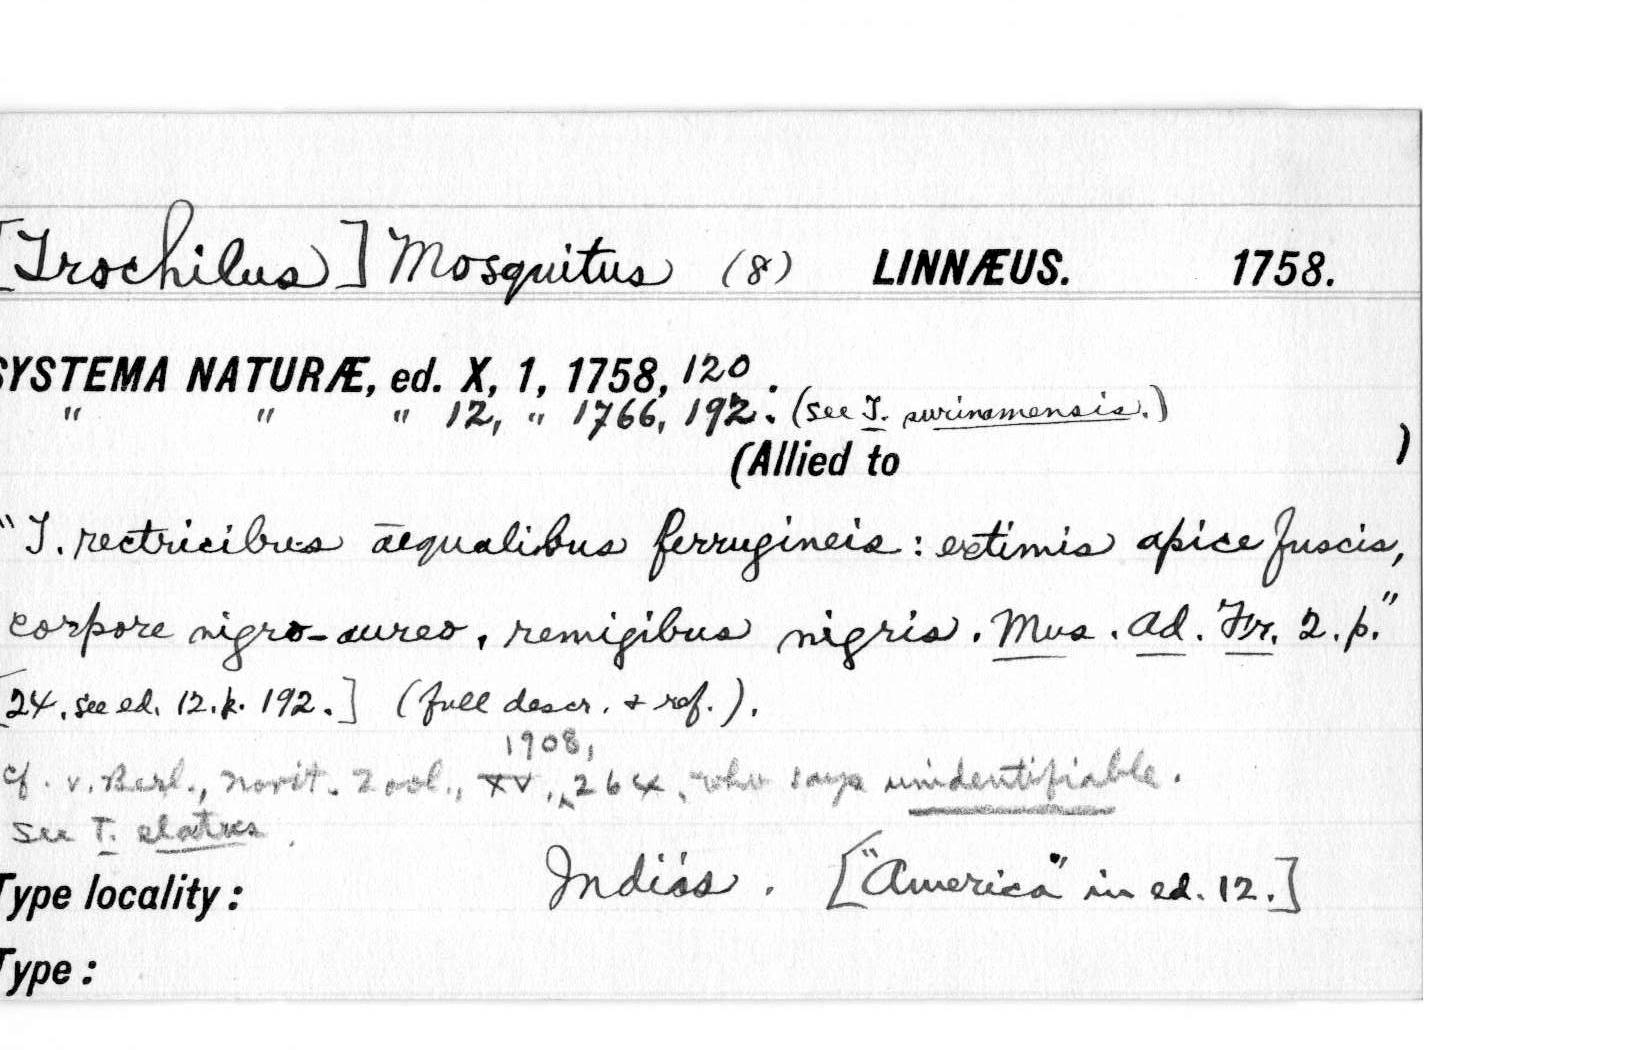 [Trochilus] Mosquitus (8) LINNÆUS. 1758.
SYSTEMA NATURÆ, ed. X, 1, 1758, 120.
" " " 12, " 1766, 192. (see T. surinamensis.)
(Allied to )
"T. rectricibus æqualibus ferrugineis: extimis apice fuscis,
corpore nigro-aureo, remigibus nigris. Mus. Ad. Fr. 2. p."
[24. see ed. 12. p. 192.] (full descr. & ref.).
1908,
Cf. v. Berl., Novit. Zool., XV, 264, who says unidentifiable.
See T. elatus.
Type locality: Indiis. ["America" in ed. 12.]
Type: